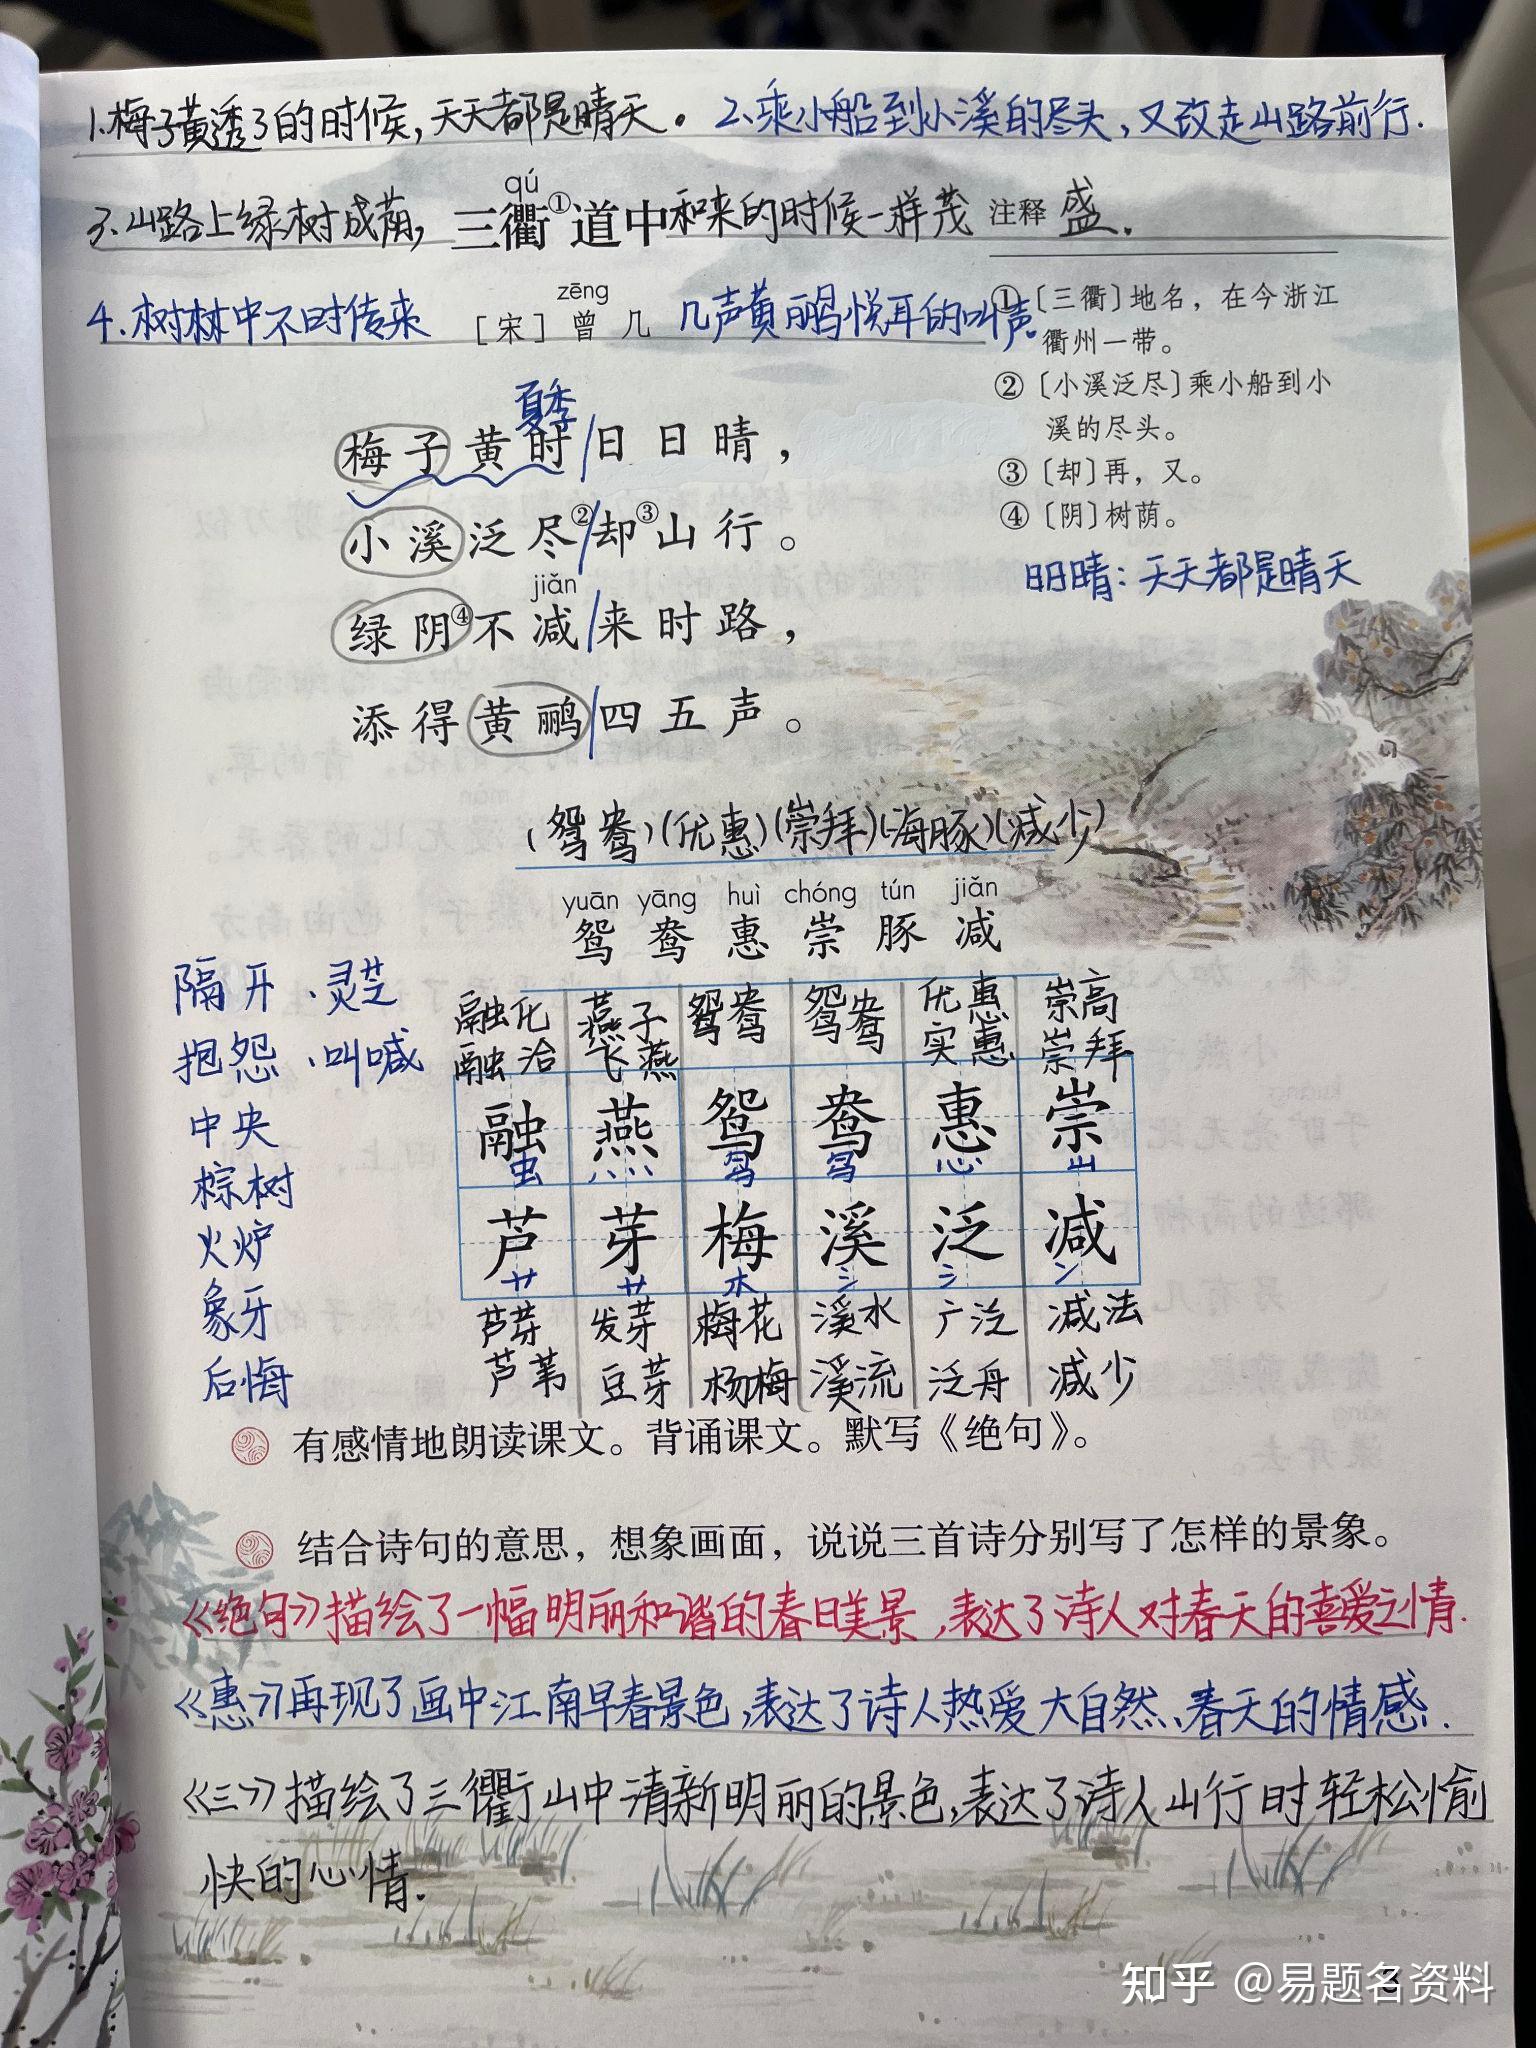 1.梅子黄透了的时候,天天都是晴天。 2.乘小船到小溪的尽头,又改走山路前行.
qú
3.山路上绿树成荫, 三衢①道中 和来的时候一样茂 注释 盛.
zēng
4.树林中不时传来 [宋] 曾 几 几声黄鹂鸟悦耳的叫声.
①〔三衢〕地名，在今浙江
衢州一带。
②〔小溪泛尽〕乘小船到小
溪的尽头。
③〔却〕再，又。
④〔阴〕树荫。
日日晴:天天都是晴天
夏季
梅子黄时/日日晴，
小溪泛尽②/却③山行。
jiǎn
绿阴④不减/来时路，
添得黄鹂/四五声。
(鸳鸯)(优惠)(崇拜)(海豚)(减少)
yuān yāng huì chóng tún jiǎn
鸳 鸯 惠 崇 豚 减
隔开 、灵芝
抱怨 、叫喊
中央
棕树
火炉
象牙
后悔
融化 燕子 鸳鸯 鸳鸯 优惠 崇高
融洽 飞燕 实惠 崇拜
融 燕 鸳 鸯 惠 崇
虫 灬 鸟 鸟 心 山
芦 芽 梅 溪 泛 减
艹 艹 木 氵 氵 冫
芦芽 发芽 梅花 溪水 广泛 减法
芦苇 豆芽 杨梅 溪流 泛舟 减少
有感情地朗读课文。背诵课文。默写《绝句》。
结合诗句的意思，想象画面，说说三首诗分别写了怎样的景象。
《绝句》描绘了一幅明丽和谐的春日美景,表达了诗人对春天的喜爱之情.
《惠~》再现了画中江南早春景色,表达了诗人热爱大自然、春天的情感.
《三~》描绘了三衢山中清新明丽的景色,表达了诗人山行时轻松愉
快的心情.
3
知乎 @易题名资料